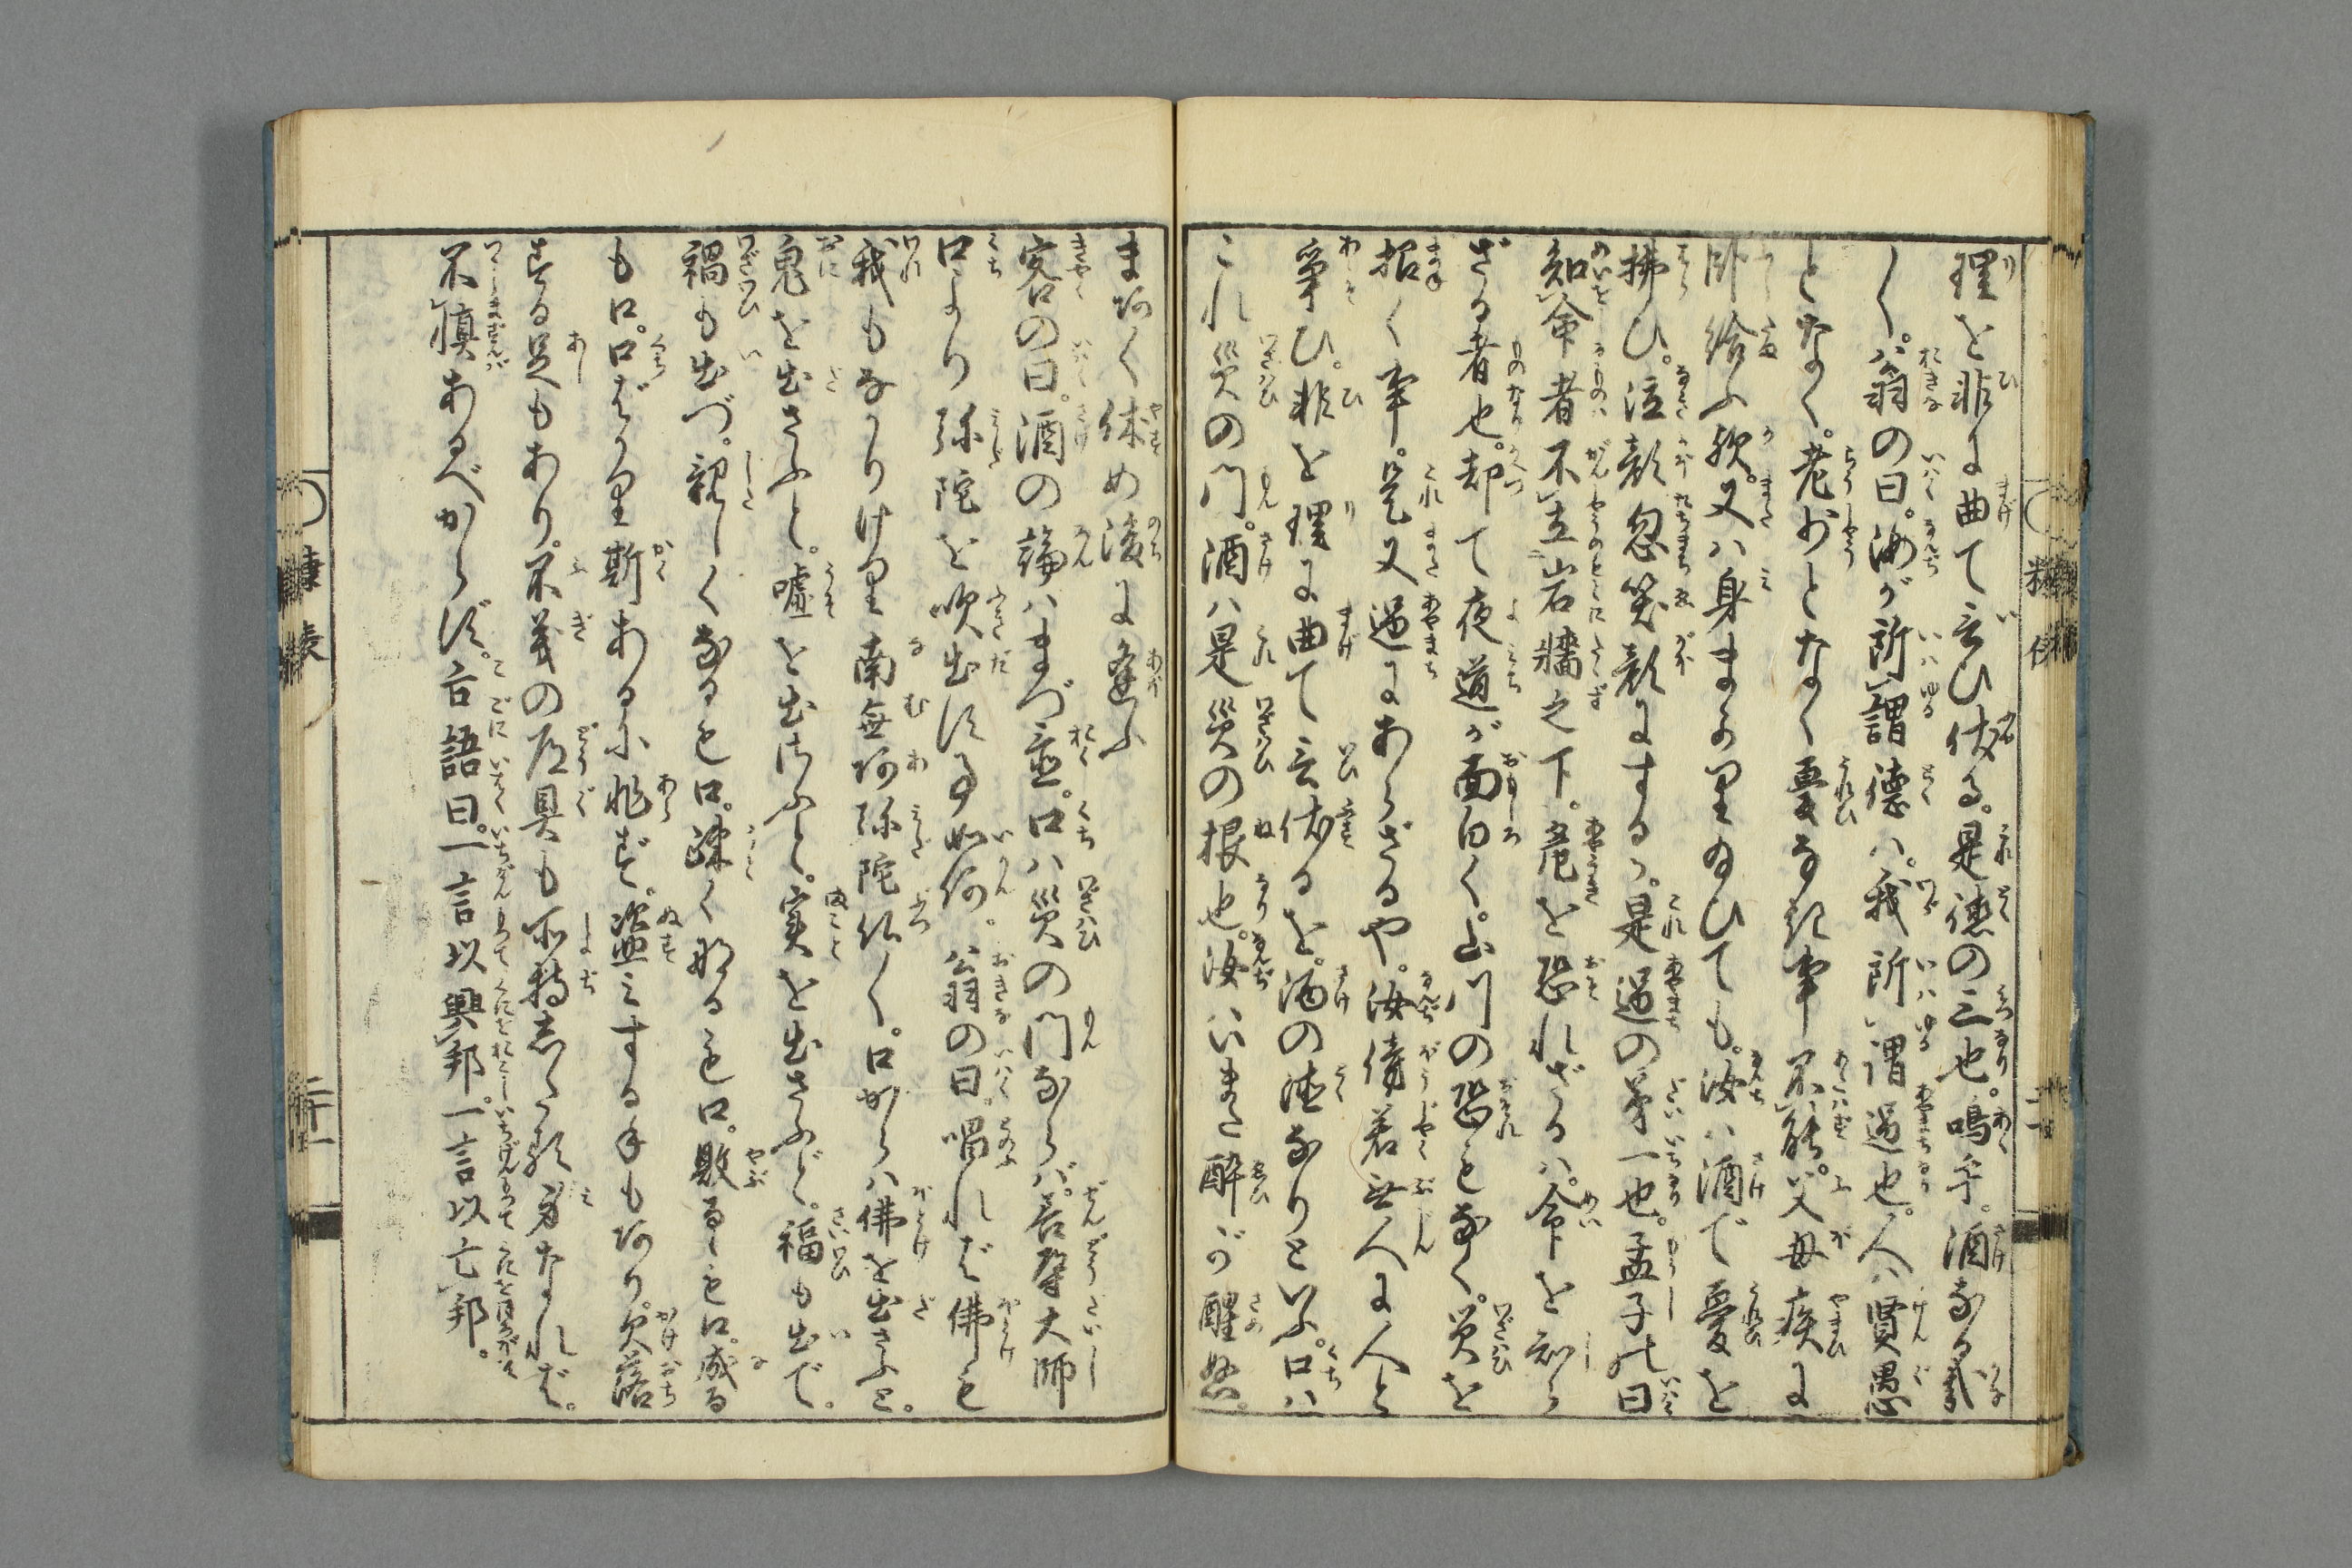 理を非に曲て言ひ伏る。是徳の三也。嗚乎。酒なる哉
〳〵。翁の曰。汝が所謂徳は。我所謂過也。人賢愚
となく。老少となく憂なき事不能。父母疾に
臥給ふ歟。又は身まかり給ひても。汝は酒で憂を
掃ひ。泣顔忽笑顔にする。是過の第一也。孟子の曰
知命者不立岩牆之下。危を恐れざるは。命を知ら
ざる者也。却て夜道が面白く。山川の恐もなく。災を
招く事。是又過にあらざるや。汝傍若無人に人と
争ひ。非を理に曲て言伏るを。酒の徳なりといふ。口は
これ災の門。酒は是災の根也。汝いまだ酔が醒ぬ。
まづ〳〵休め後に逢ふ
客の曰。酒の論はまづ置。口は災の門ならば。善導大師
口より弥陀を吹出す事如何。翁の曰。唱れば佛も
我もなかりけり南無阿弥陀仏〳〵。口からは佛を出さふと。
鬼を出さふと。嘘を出さふと。実を出さふと。福も出で。
禍も出づ。親しくなるも口。疎く成るも口。敗るゝも口。成る
も口。口ばかり斯あるに非ず。盗みする手もあり。欠落
する足もあり。不義の道具も所持したる身なれば。
不慎あるべからず。古語曰。一言以興邦。一言以亡邦。